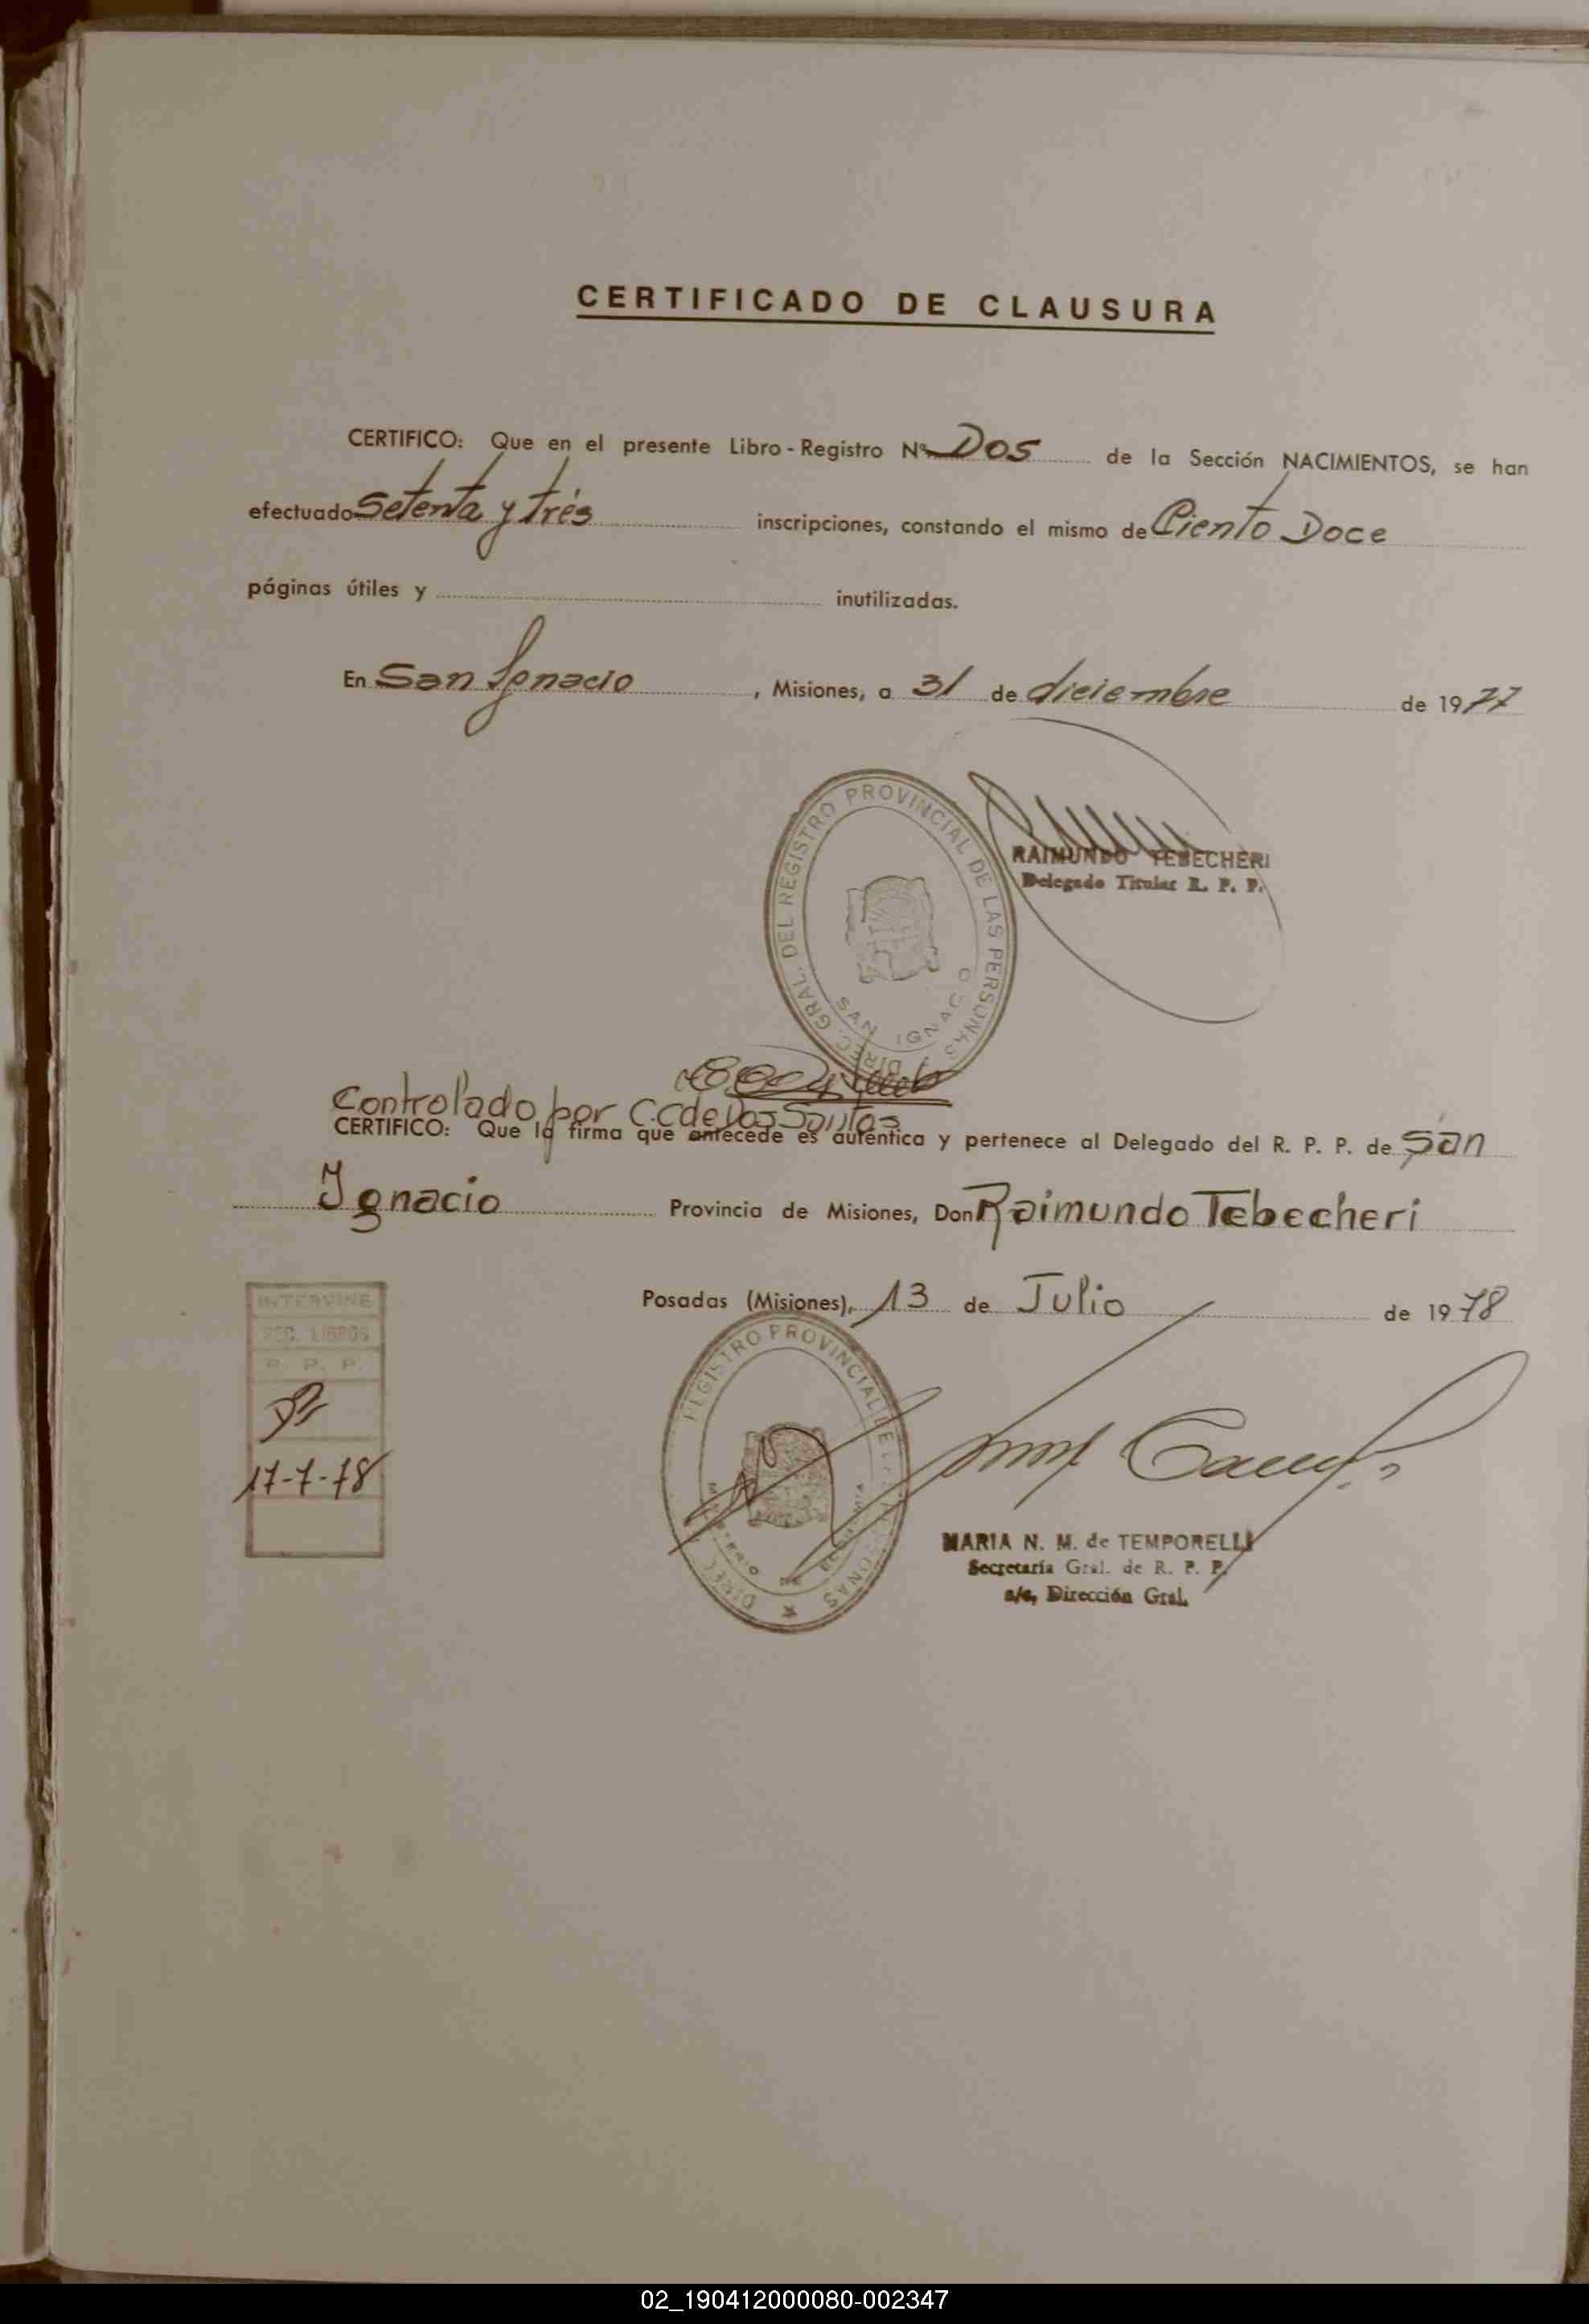 CERTIFICADO DE CLAUSURA
CERTIFICO: Que en el presente Libro - Registro Nº Dos de la Sección NACIMIENTOS, se han
efectuado Setenta y trés inscripciones, constando el mismo de Ciento Doce
páginas útiles y inutilizadas.
En San Ignacio, Misiones, a 31 de diciembre de 1977
DIREC. GRAL. DEL REGISTRO PROVINCIAL DE LAS PERSONAS
SAN IGNACIO
RAIMUNDO TEBECHERI
Delegado Titular R. P. P.
Controlado por C.C de Dos Santos
CERTIFICO: Que la firma que antecede es auténtica y pertenece al Delegado del R. P. P. de San
Ignacio Provincia de Misiones, Don Raimundo Tebecheri
Posadas (Misiones), 13 de Julio de 1978
INTERVINE
SEC. LIBROS
R. P. P.
17-7-78
REGISTRO PROVINCIAL DE LAS PERSONAS
MARIA N. M. de TEMPORELLI
Secretaría Gral. de R. P. P.
a/c, Dirección Gral.
02_190412000080-002347